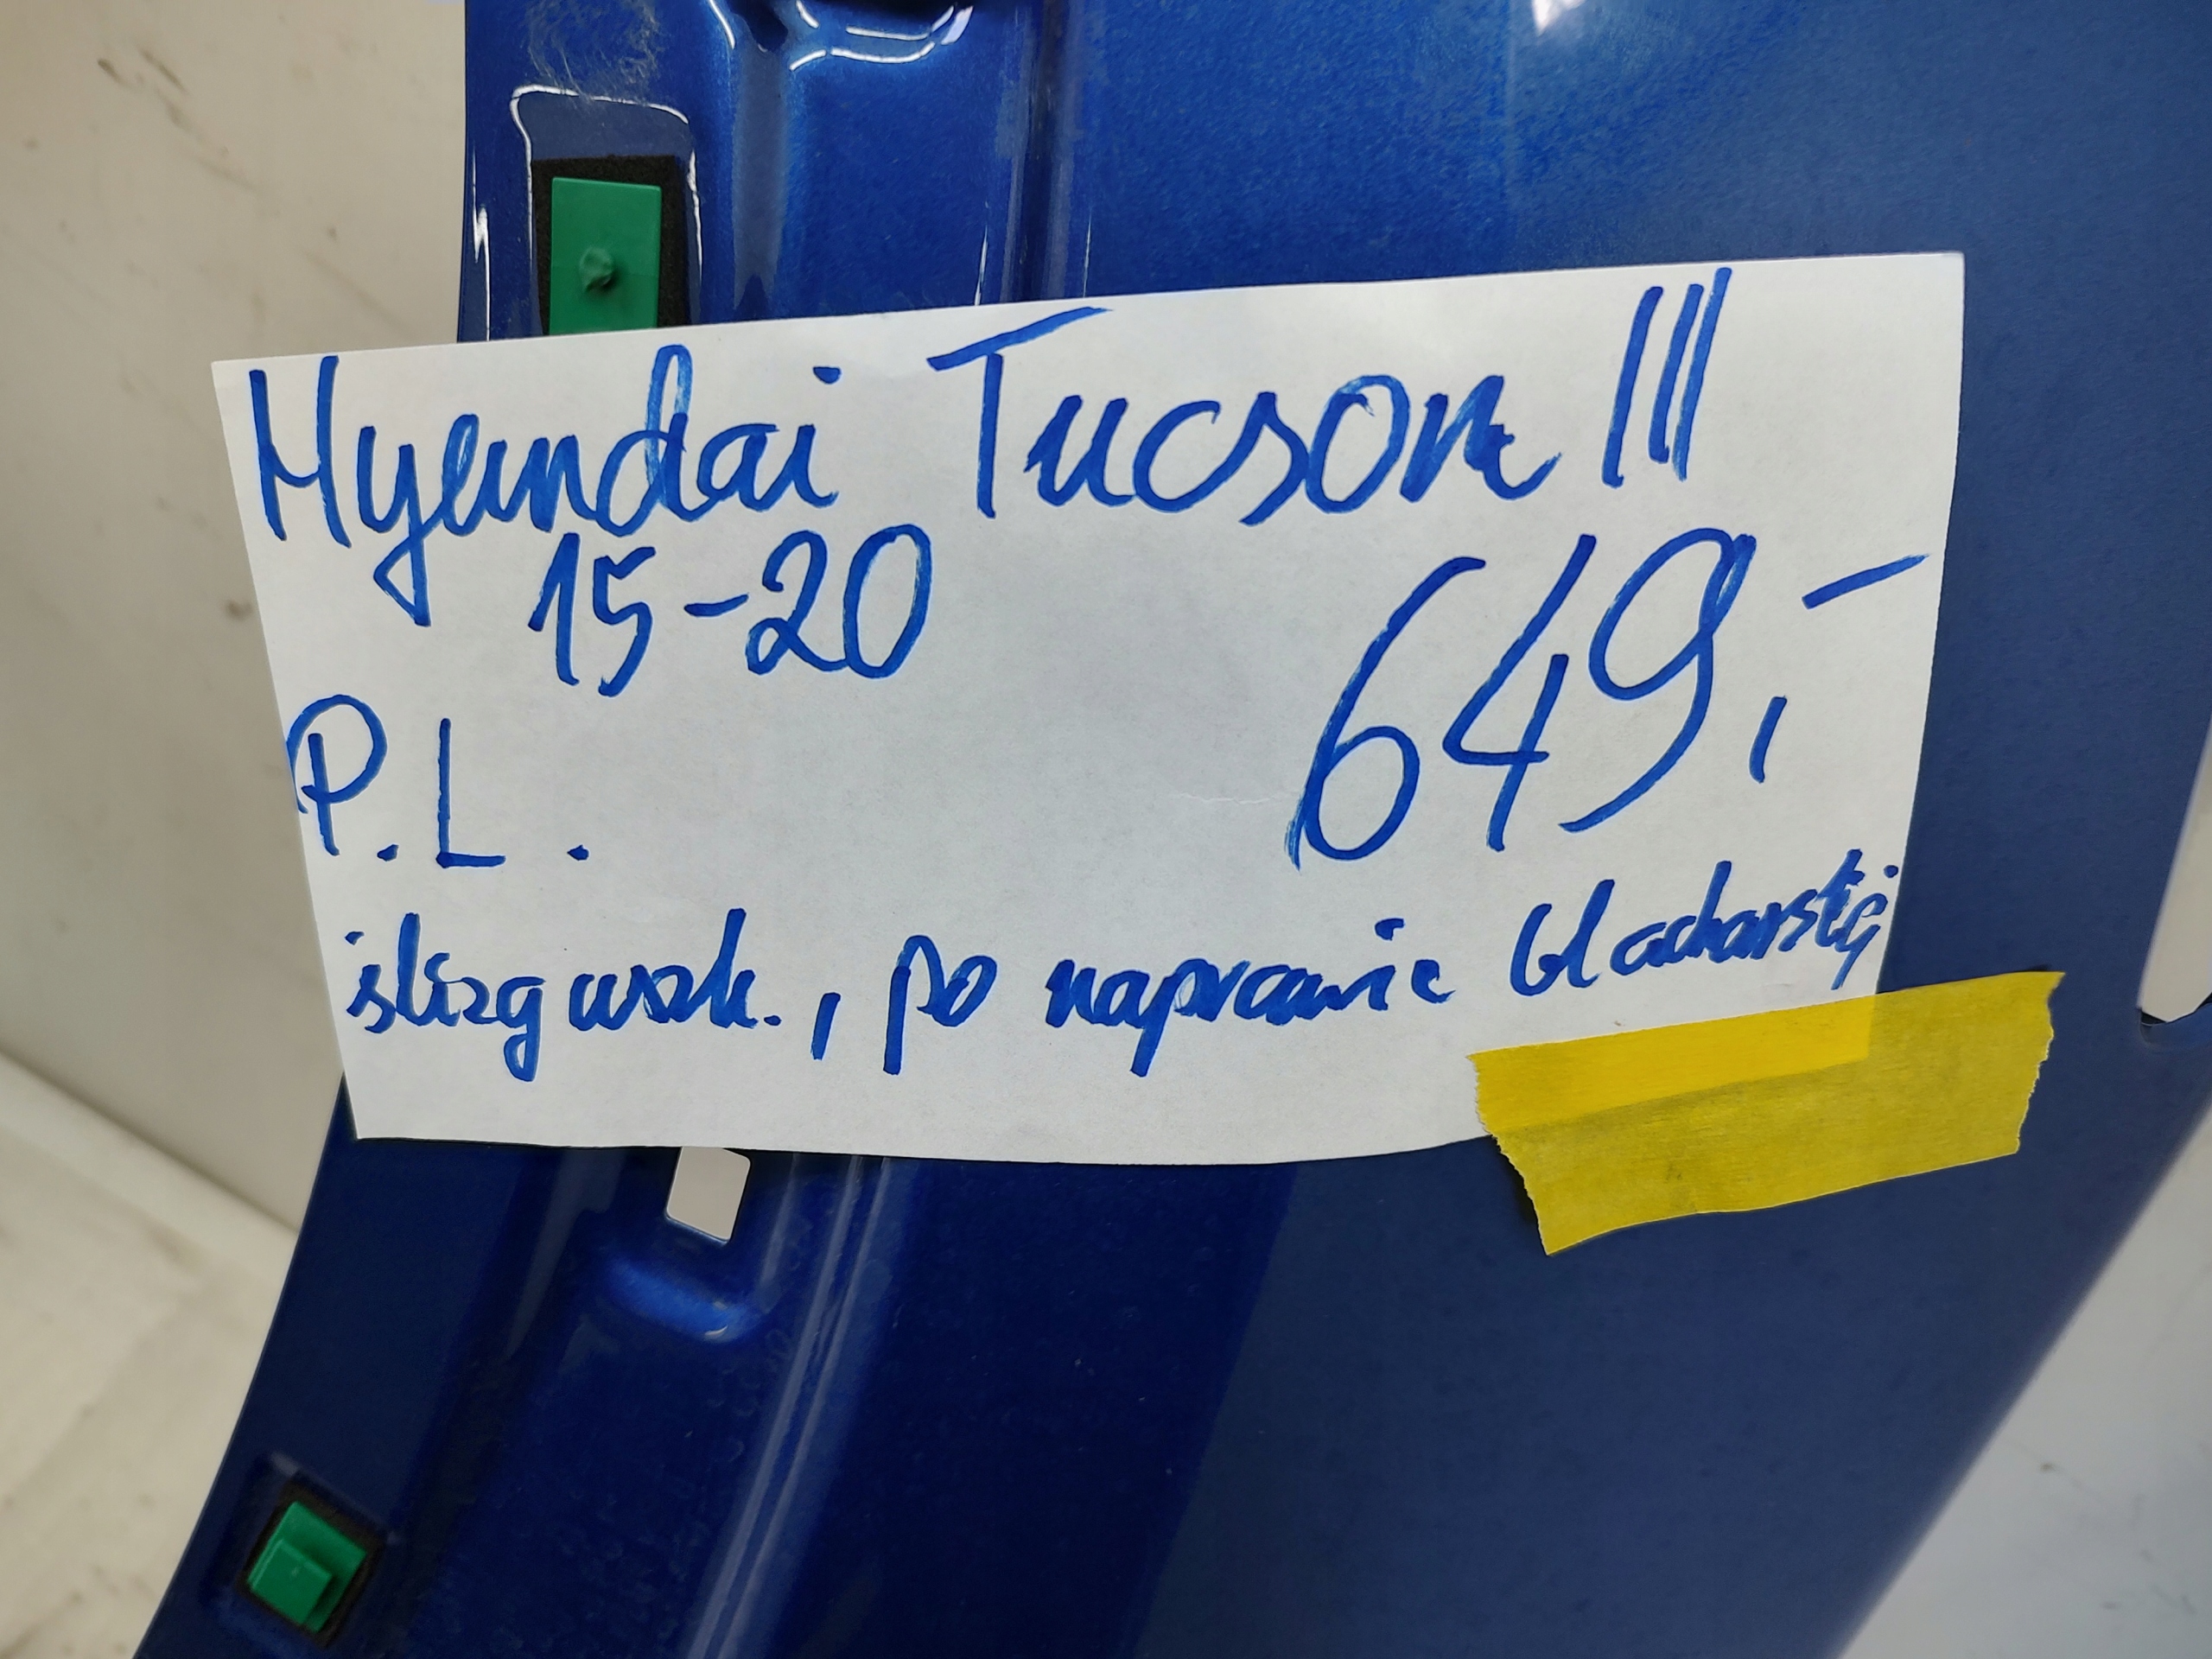 Hyundai Tucson III
15-20
649,-
P.L.
ślizg uszk., po naprawie